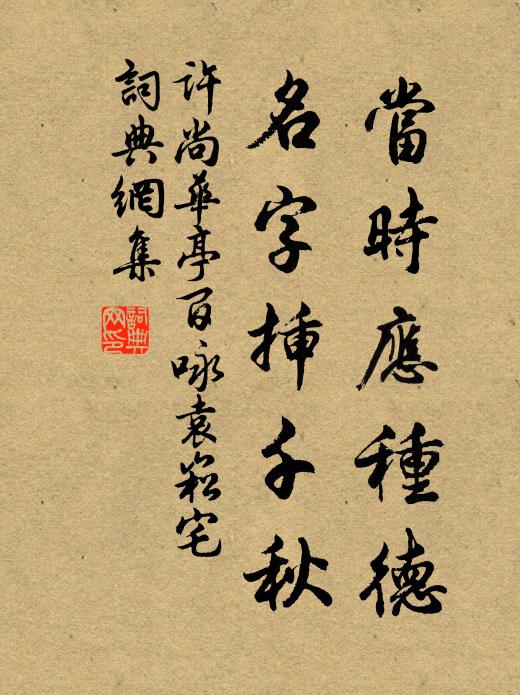 當時應種德
名字揷千秋
許尚華亭百咏袁崧宅
詞典網集
詞典網印